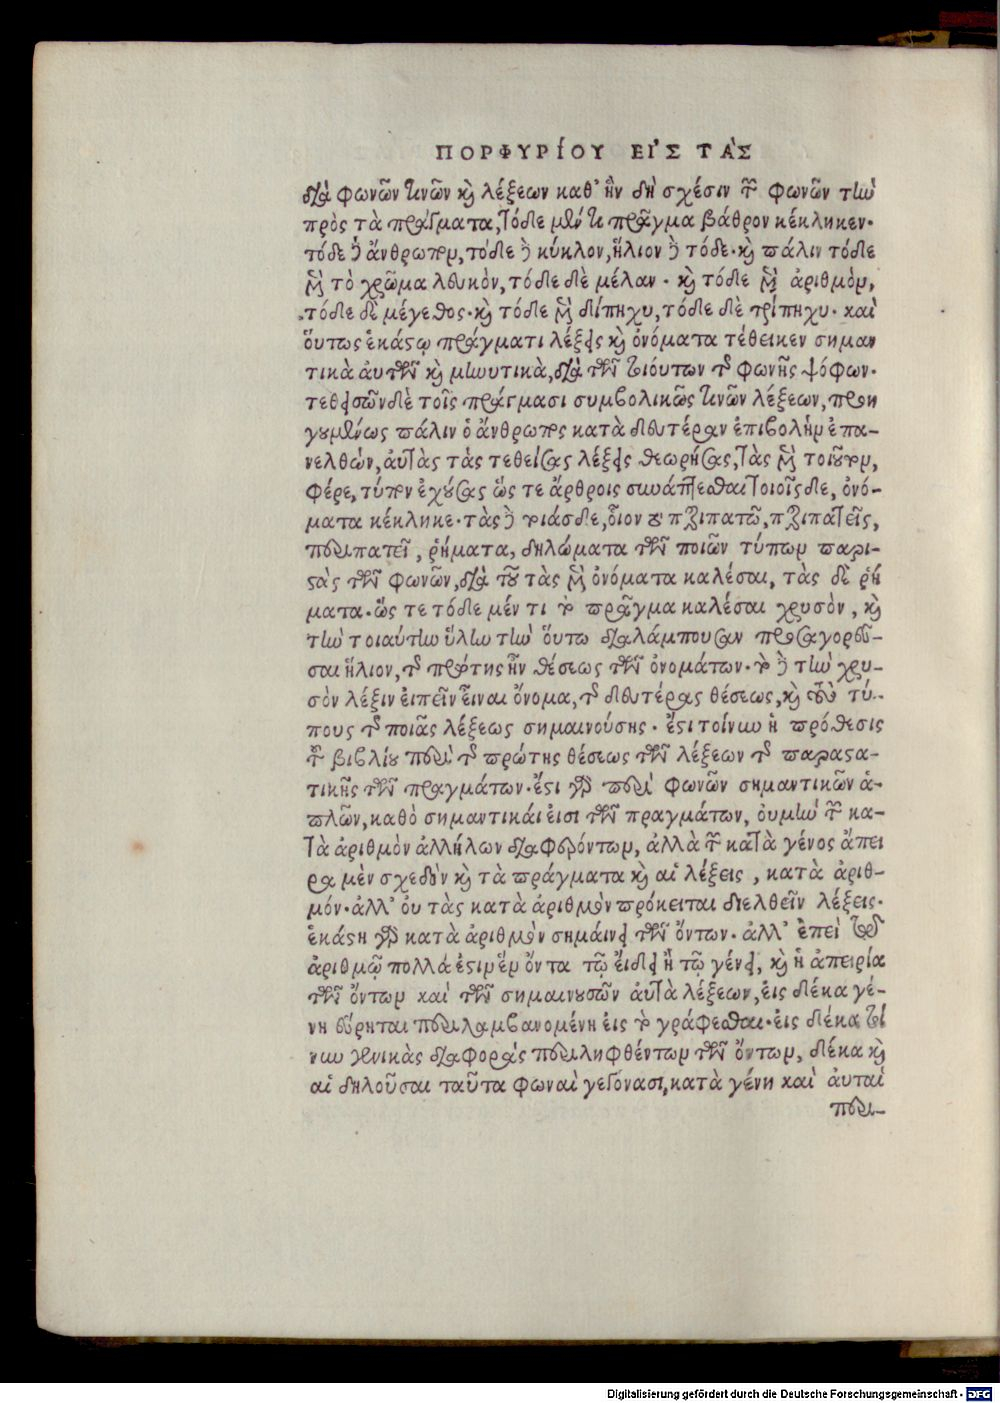 ΠΟΡΦΥΡίΟΥ ΕΙ'Σ ΤΑ'Σ
διὰ φωνῶν τινῶν καὶ λέξεων καθ' ἣν δὴ σχέσιν τῶν φωνῶν τὴν
πρὸς τὰ πράγματα, τόδε μέν τι πρᾶγμα βάθρον κέκληκεν·
τόδε δὲ ἄνθρωπον, τόδε δὲ κύκλον, ἥλιον δὲ τόδε· καὶ πάλιν τόδε
μὲν τὸ χρῶμα λευκὸν, τόδε δὲ μέλαν· καὶ τόδε μὲν ἀριθμὸν,
τόδε δὲ μέγεθος· καὶ τόδε μὲν δίπηχυ, τόδε δὲ τρίπηχυ· καὶ
ὅυτως ἑκάστῳ πράγματι λέξεις καὶ ὀνόματα τέθεικεν σημαν
τικὰ ἀυτῶν καὶ μηνυτικὰ, διὰ τῶν τοιούτων τῆς φωνῆς ψόφων·
τεθεισῶν δὲ τοῖς πράγμασι συμβολικῶς τινῶν λέξεων, προη
γουμένως πάλιν ὁ ἄνθρωπος κατὰ δευτέραν ἐπιβολὴν ἐπα-
νελθὼν, ἀυτὰς τὰς τεθείσας λέξεις θεωρήσας, τὰς μὲν τοιοῦτον,
φέρε, τύπον ἐχούσας ὥς τε ἄρθροις συνάπτεσθαι τοιοῖσδε, ὀνό-
ματα κέκληκε· τὰς δὲ τοιάσδε, οἷον τὸ περιπατῶ, περιπατεῖς,
περιπατεῖ, ῥήματα, δηλώματα τῶν ποιῶν τύπων παρι-
στὰς τῶν φωνῶν, διὰ τοῦ τὰς μὲν ὀνόματα καλέσαι, τὰς δὲ ῥή
ματα· ὥς τε τόδε μέν τι τὸ πρᾶγμα καλέσαι χρυσὸν, καὶ
τὴν τοιαύτην ὕλην τὴν ὅυτω διαλάμπουσαν προσαγορεῦ-
σαι ἥλιον, τῆς πρώτης ἦν θέσεως τῶν ὀνομάτων· τὸ δὲ τὴν χρυ-
σὸν λέξιν ἐιπεῖν εἶναι ὄνομα, τῆς δευτέρας θέσεως, καὶ τοὺς τύ-
πους τῆς ποιᾶς λέξεως σημαινούσης· ἔστι τοίνυν ἡ πρόθεσις
τοῦ βιβλίου περὶ τῆς πρώτης θέσεως τῶν λέξεων τῆς παραστα-
τικῆς τῶν πραγμάτων· ἔστι γὰρ περὶ φωνῶν σημαντικῶν ἁ-
πλῶν, καθὸ σημαντικάι ἐισι τῶν πραγμάτων, ὀυ μὴν τῶν κα-
τὰ ἀριθμὸν ἀλλήλων διαφερόντων, ἀλλὰ τῶν κατὰ γένος ἄπει
ρα μὲν σχεδὸν καὶ τὰ πράγματα καὶ αἱ λέξεις, κατὰ ἀριθ-
μόν· ἀλλ' ὀυ τὰς κατὰ ἀριθμὸν πρόκειται διελθεῖν λέξεις·
ἑκάστη γὰρ κατὰ ἀριθμὸν σημαίνει τῶν ὄντων· ἀλλ' ἐπεὶ τῷ
ἀριθμῷ πολλά ἐστιν ἓν ὄντα τῷ ἔιδει ἢ τῷ γένει, καὶ ἡ ἀπειρία
τῶν ὄντων καὶ τῶν σημαινουσῶν ἀυτὰ λέξεων, ἐις δέκα γέ-
νη ἕυρηται περιλαμβανομένη ἐις τὸ γράφεσθαι· ἐις δέκα τοί
νυν γενικὰς διαφορὰς περιληφθέντων τῶν ὄντων, δέκα καὶ
αἱ δηλοῦσαι ταῦτα φωναὶ γεγόνασι, κατὰ γένη καὶ ἀυταὶ
περι-
Digitalisierung gefördert durch die Deutsche Forschungsgemeinschaft - DFG